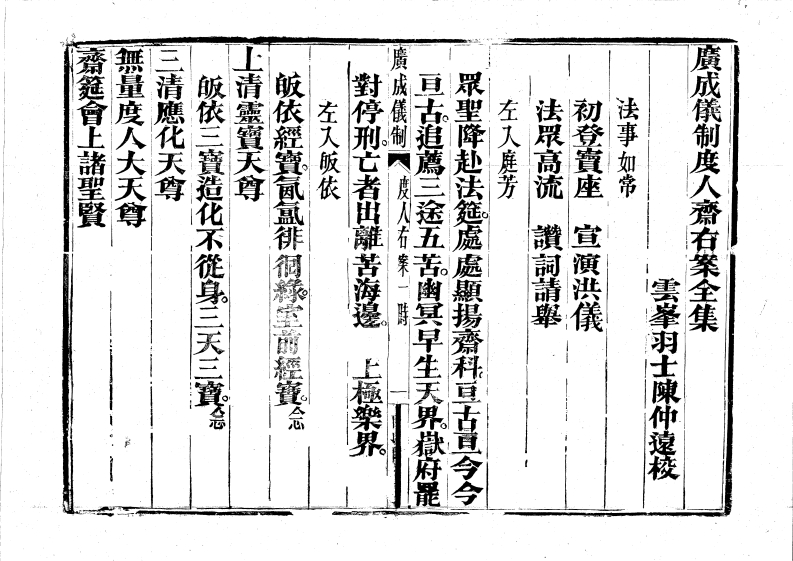 廣成儀制度人齋右案全集
雲峯羽士陳仲遠校
法事如常
初登寶座 宣演洪儀
法眾高流 讚詞請舉
左入庭芳
眾聖降赴法筵。處處顯揚齋科。亘古亘今今
亘古。追薦三途五苦。幽冥早生天界。嶽府罷
廣成儀制 度人右案一時 一
對停刑。亡者出離苦海邊。 上極樂界。
左入皈依
皈依經寶。氤氳徘徊。綠室前經寶。仝念
上清靈寶天尊
皈依三寶造化不從身。三天三寶。仝念
三清應化天尊
無量度人大天尊
齋筵會上諸聖賢